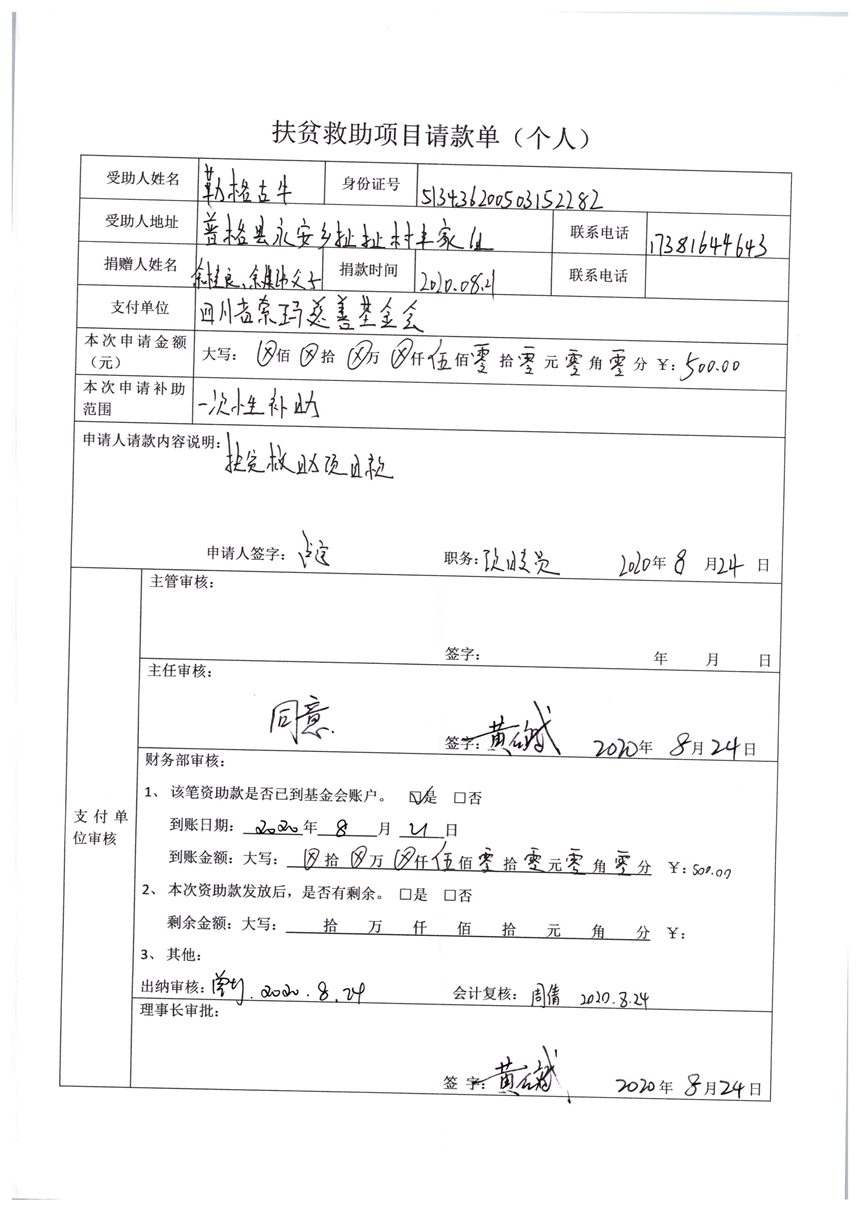 扶贫救助项目请款单（个人）
受助人姓名 勒格古牛 身份证号 513436200503152282
受助人地址 普格县永安乡扯扯村 联系电话 17381644643
捐赠人姓名 父子 捐款时间 2020.08.21 联系电话
支付单位 四川省索玛慈善基金会
本次申请金额（元） 大写：ⓧ佰ⓧ拾ⓧ万ⓧ仟伍佰零拾零元零角零分 ￥：500.00
本次申请补助范围 一次性补助
申请人请款内容说明：扶贫救助项目款
申请人签字： 职务： 2020年8月24日
支付单位审核
主管审核：
签字： 年 月 日
主任审核：
同意
签字：黄 2020年8月24日
财务部审核：
1、 该笔资助款是否已到基金会账户。 ☑是 □否
到账日期：2020年8月21日
到账金额：大写：ⓧ拾ⓧ万ⓧ仟伍佰零拾零元零角零分 ￥：500.00
2、 本次资助款发放后，是否有剩余。 □是 □否
剩余金额：大写： 拾 万 仟 佰 拾 元 角 分 ￥：
3、 其他：
出纳审核： 2020.8.24 会计复核：周倩 2020.8.24
理事长审批：
签字：黄 2020年8月24日